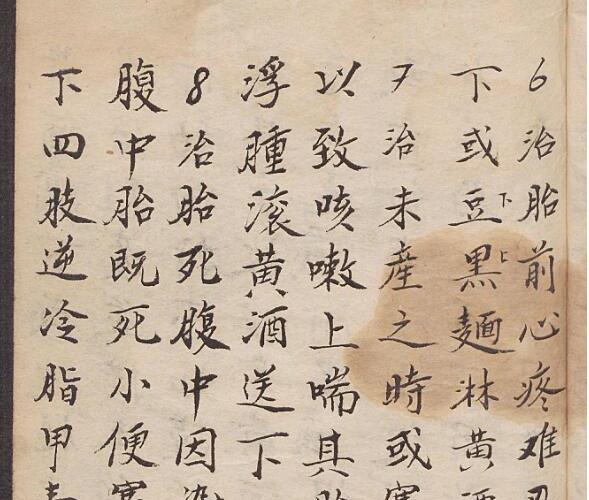 6治胎前心疼难
下或豆下黑上麵淋黄
7治未産之時或
以致咳嗽上喘其
浮腫滚黄酒送下
8治胎死腹中因
腹中胎既死小便
下四肢逆冷脂甲